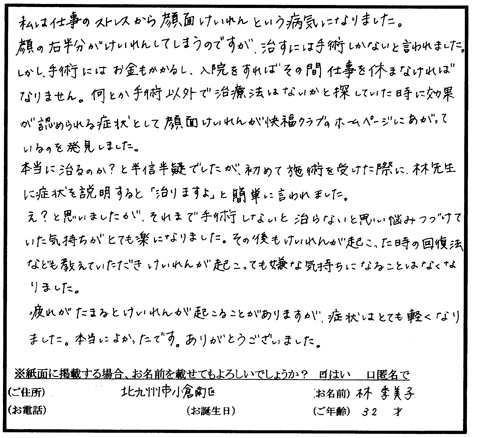 私は仕事のストレスから顔面けいれんという病気になりました。
顔の右半分がけいれんしてしまうのですが、治すには手術しかないと言われました。
しかし、手術にはお金もかかるし、入院をすればその間仕事を休まなければ
なりません。何とか手術以外で治療法はないかと探していた時に効果
が認められる症状として顔面けいれんが快福クラブのホームページにあがって
いるのを発見しました。
本当に治るのか?と半信半疑でしたが、初めて施術を受けた際に、林先生
に症状を説明すると「治りますよ」と簡単に言われました。
え?と思いましたが、それまで手術しないと治らないと思い悩みつづけて
いた気持ちがとても楽になりました。その後もけいれんが起こった時の回復法
なども教えていただきけいれんが起こっても嫌な気持ちになることはなくな
りました。
疲れがたまるとけいれんが起こることがありますが、症状はとても軽くなり
ました。本当によかったです。ありがとうございました。
※紙面に掲載する場合、お名前を載せてもよろしいでしょうか? ☑はい □匿名で
(ご住所) 北九州市小倉南区 お名前) 林 季美子
(お電話) (お誕生日) (ご年齢) 32 才